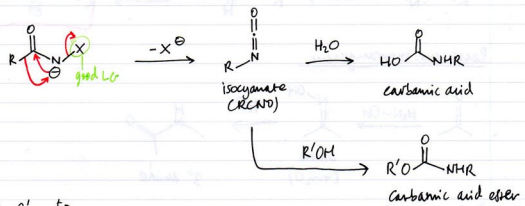 O
R
N
X
⊖
good LG
-X⊖
O
N
R
isocyanate
(RCNO)
H2O
O
HO
NHR
carbamic acid
R'OH
O
R'O
NHR
carbamic acid ester